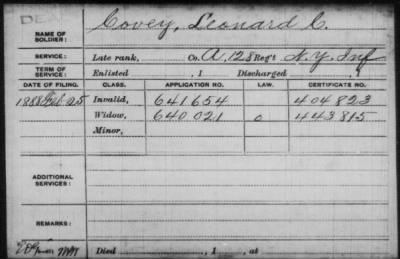 NAME OF SOLDIER: Covey, Leonard C.
SERVICE: Late rank, Co. A, 128 Reg't N.Y. Inf
TERM OF SERVICE: Enlisted , 1 Discharged , 1
DATE OF FILING. CLASS. APPLICATION NO. LAW. CERTIFICATE NO.
1888 Feb. 25 Invalid, 641654 404823
Widow, 640021 0 443815
Minor,
ADDITIONAL SERVICES:
REMARKS:
Died , 1 , at